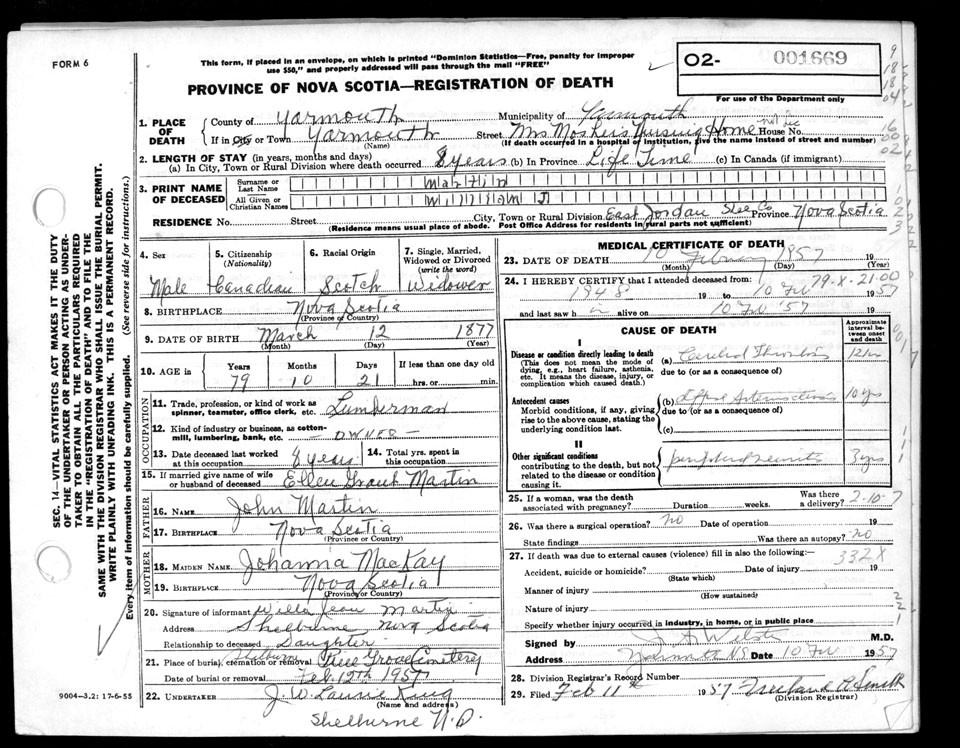 FORM 6
This form, if placed in an envelope, on which is printed "Dominion Statistics—Free, penalty for improper
use $50," and properly addressed will pass through the mail "FREE"
02- 001669
PROVINCE OF NOVA SCOTIA—REGISTRATION OF DEATH
For use of the Department only
1. PLACE OF DEATH
County of Yarmouth Municipality of Yarmouth
If in City or Town Yarmouth (Name) Street Mrs Mosher's Nursing Home House No.
(If death occurred in a hospital or institution, give the name instead of street and number)
2. LENGTH OF STAY (in years, months and days)
(a) In City, Town or Rural Division where death occurred 8 years (b) In Province Life Time (c) In Canada (if immigrant)
3. PRINT NAME OF DECEASED
Surname or Last Name Martin
All Given or Christian Names William J
RESIDENCE No. Street City, Town or Rural Division East Jordan Shel. Co. Province Nova Scotia
(Residence means usual place of abode. Post Office Address for Residents in rural parts not sufficient)
4. Sex
Male
5. Citizenship (Nationality)
Canadian
6. Racial Origin
Scotch
7. Single, Married, Widowed or Divorced (write the word)
Widower
8. BIRTHPLACE Nova Scotia
(Province or Country)
9. DATE OF BIRTH March 12 1877
(Month) (Day) (Year)
10. AGE in Years Months Days If less than one day
79 10 21 hrs. or min.
OCCUPATION
11. Trade, profession, or kind of work as
spinner, teamster, office clerk, etc. Lumberman
12. Kind of industry or business, as cotton-
mill, lumbering, bank, etc. — OWNER —
13. Date deceased last worked
at this occupation 8 years
14. Total yrs. spent in
this occupation
15. If married give name of wife
or husband of deceased Ellen Grant Martin
FATHER
16. NAME John Martin
17. BIRTHPLACE Nova Scotia
(Province or Country)
MOTHER
18. MAIDEN NAME Johanna MacKay
19. BIRTHPLACE Nova Scotia
(Province or Country)
20. Signature of informant Willa Jean Martin
Address Shelburne Nova Scotia
Relationship to deceased Daughter
21. Place of burial, cremation or removal Shelburne Pine Grove Cemetery
Date of burial or removal Feb. 12th 1957
22. UNDERTAKER J. W. Laurie King
(Name and address)
Shelburne N.S.
9004-3.2: 17-6-55
MEDICAL CERTIFICATE OF DEATH
23. DATE OF DEATH 10 February 1957 19
(Month) (Day) (Year)
24. I HEREBY CERTIFY that I attended deceased from: 79-X-21.00
1948 19 to 10 Feb 1957
and last saw h alive on 10 Feb '57
CAUSE OF DEATH
Approximate interval between onset and death
I
Disease or condition directly leading to death
(This does not mean the mode of
dying, e.g., heart failure, asthenia,
etc. It means the disease, injury, or
complication which caused death.)
(a) Cerebral Thrombosis
due to (or as a consequence of)
Antecedent causes
Morbid conditions, if any, giving
rise to the above cause, stating the
underlying condition last.
(b) 10 yrs
due to (or as a consequence of)
(c)
II
Other significant conditions
contributing to the death, but not
related to the disease or condition
causing it.
3 yrs
25. If a woman, was the death
associated with pregnancy? Duration weeks. Was there
a delivery? 2-10-7
26. Was there a surgical operation? no Date of operation 19
State findings Was there an autopsy? no
27. If death was due to external causes (violence) fill in also the following: 332X
Accident, suicide or homicide? Date of injury 19
(State which)
Manner of injury
(How sustained)
Nature of injury
Specify whether injury occurred in industry, in home, or in public place
Signed by M.D.
Address Yarmouth N.S. Date 10 Feb 1957
28. Division Registrar's Record Number
29. Filed Feb 11th 1957
(Division Registrar)
SEC. 14—VITAL STATISTICS ACT MAKES IT THE DUTY
OF THE UNDERTAKER OR PERSON ACTING AS UNDER-
TAKER TO OBTAIN ALL THE PARTICULARS REQUIRED
IN THE "REGISTRATION OF DEATH" AND TO FILE THE
SAME WITH THE DIVISION REGISTRAR WHO SHALL ISSUE THE BURIAL PERMIT.
WRITE PLAINLY WITH UNFADING INK. THIS IS A PERMANENT RECORD.
Every item of information should be carefully supplied. (See reverse side for instructions.)